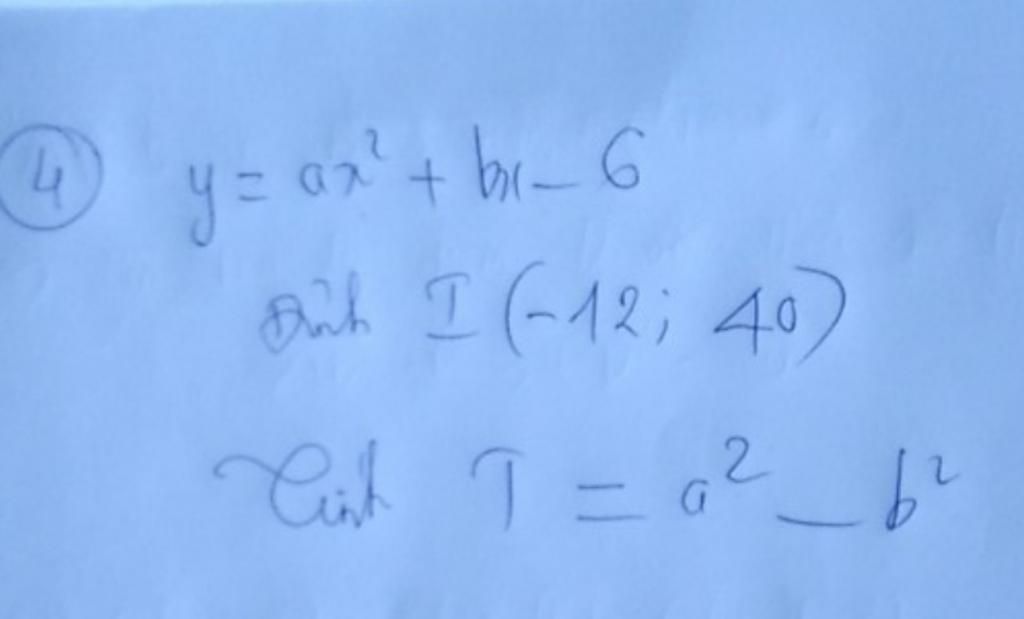 4 y = ax² + bx - 6
Đỉnh I (-12; 40)
Tính T = a² - b²